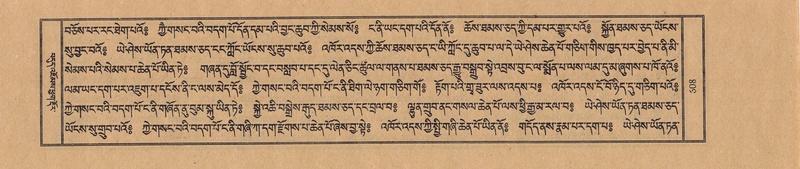 བཅོས་པར་རང་ཐེག་པའོ༔ ཀྱཻ་གསང་བའི་བདག་པོ་དོན་དམ་པའི་བྱང་ཆུབ་ཀྱི་སེམས་སོ༔ ང་ནི་ཡང་དག་པའི་དོན་ནོ༔ ཆོས་ཐམས་ཅད་ཀྱི་དམ་པར་གྱུར་པའོ༔ སྐྱོན་ཐམས་ཅད་ཡོངས་
སུ་བྱང་བའོ༔ ཡེ་ཤེས་ཡོན་ཏན་ཐམས་ཅད་ངང་ཀློང་ཡོངས་སུ་ཆུབ་པའོ༔ འཁོར་འདས་ཀྱི་ཆོས་ཐམས་ཅད་ང་ཡི་ཀློང་དུ་ཆུབ་པ་ལ་དེ་ཡེ་ཤེས་ཆེན་པོ་གཅིག་གིས་ཁྱད་པར་བྱེད་པ་ནི་མི་
སེམས་པའི་སེམས་པ་ཆེན་པོ་ཡིན་ཏེ༔ གཞན་དུ་བློ་སྦྱོང་བ་དང་བསླབ་པ་དང་དུ་ལེན་ཅིང་ཚུལ་ལ་གནས་པ་ཐམས་ཅད་རྒྱུ་བསྒྲུབ་སྟེ་འབྲས་བུ་ང་ལ་སྨོན་པ་ལས་ལམ་དུ་མ་ཞུགས་པ་ཁོ་ནའོ༔
ལམ་ཡང་དག་པར་འཇུག་པ་དངོས་ནི་ང་ལས་མེད་དོ༔ ཀྱེ་གསང་བའི་བདག་པོ་ང་ནི་ཐིག་ལེ་ཉག་གཅིག་གོ༔ རྟོག་པའི་གྲྭ་ཟུར་ལས་འདས་པ༔ འཁོར་འདས་ངོ་བོ་ཉིད་དུ་གཅིག་པའོ༔
ཀྱེ་གསང་བའི་བདག་པོ་ང་ནི་གཞོན་ནུ་བུམ་སྐུ་ཡིན་ཏེ༔ སྐྱེ་འཆི་བསྒྲེས་རྒུད་ཐམས་ཅད་དང་བྲལ་བ༔ ལྷུན་གྲུབ་ནང་གསལ་ཆེན་པོ་ལས་ཕྱི་རྒྱ་མ་རལ་བ༔ ཡེ་ཤེས་ཡོན་ཏན་ཐམས་ཅད་
ཡོངས་སུ་གྲུབ་པའོ༔ ཀྱེ་གསང་བའི་བདག་པོ་ང་ནི་གཞི་ཀ་དག་རྫོགས་པ་ཆེན་པོ་ཞེས་བྱ་སྟེ༔ འཁོར་འདས་ཀྱི་སྤྱི་གཞི་ཆེན་པོ་ཡིན་ནོ༔ གདོད་ནས་རྣམ་པར་དག་པ༔ ཡེ་ཤེས་ཡོན་ཏན་
508